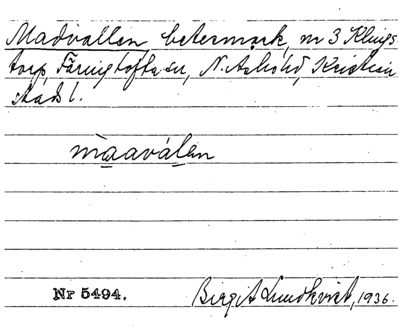 Madvallen betesmark, nr 3 Klings
torp, Färingtofta sn, N. Åsbo hd, Kristian
stads l.
màaválen
Nr 5494.
Birgit Lundkvist, 1936.